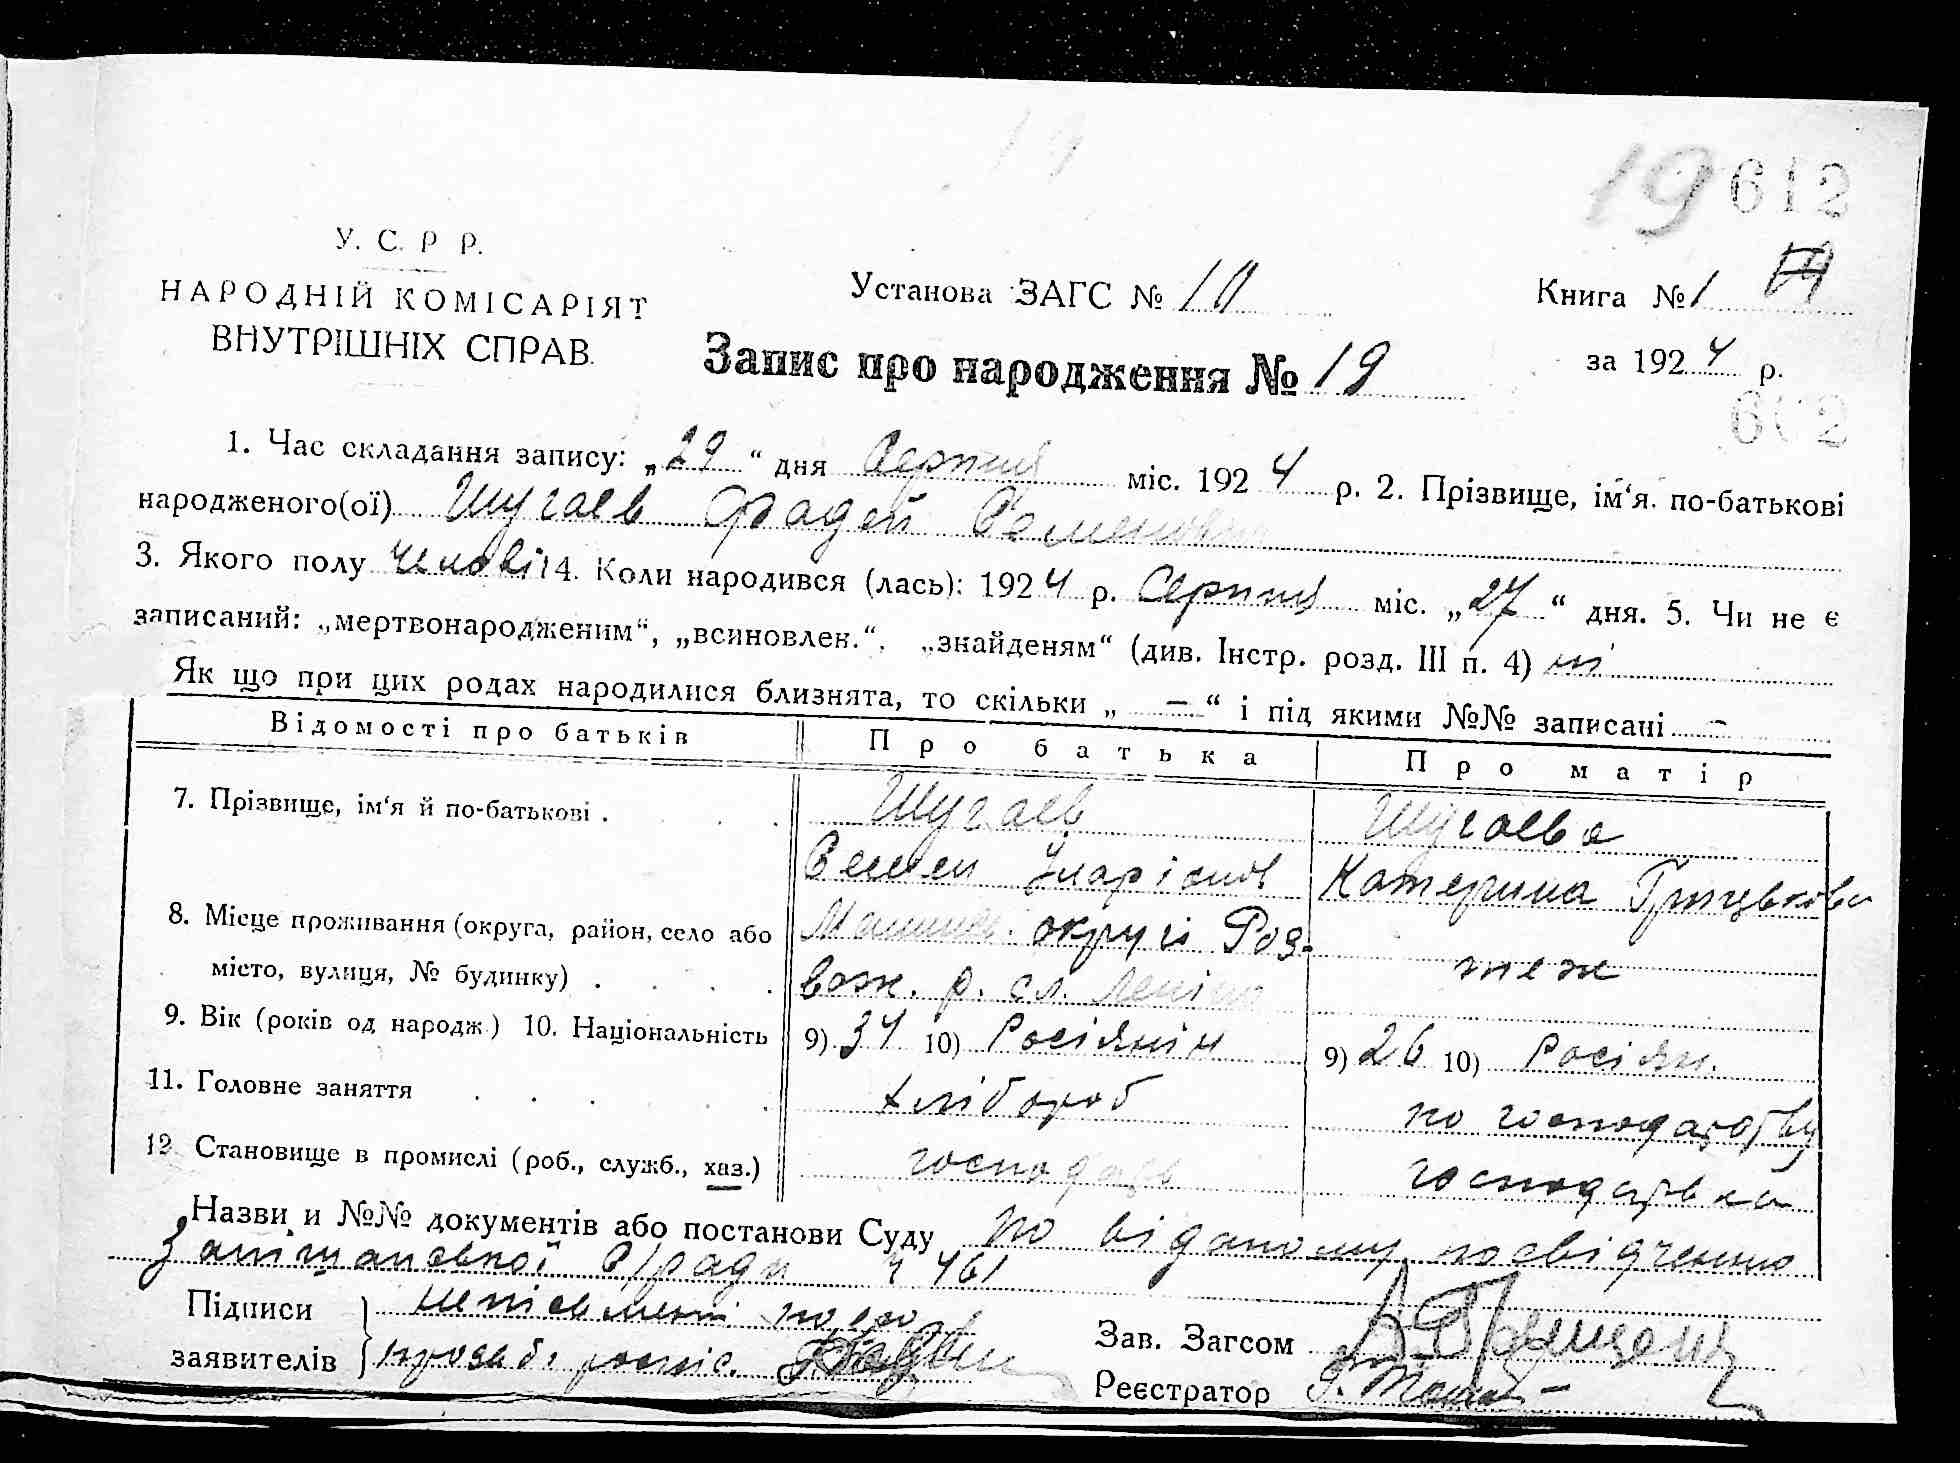 19 612
У. С. Р. Р.
НАРОДНІЙ КОМІСАРІЯТ
ВНУТРІШНІХ СПРАВ.
Установа ЗАГС № 10
Книга № 1 19
Запис про народження № 19
за 1924 р.
602
1. Час складання запису: „29“ дня Серпня міс. 1924 р. 2. Прізвище, ім‘я. по-батькові
народженого(ої) Шугаев Фадей Семенович
3. Якого полу человічі 4. Коли народився (лась): 1924 р. Серпня міс. „27“ дня. 5. Чи не є
записаний: „мертвонародженим“, „всиновлен.“, „знайденям“ (див. Інстр. розд. III п. 4) ні
Як що при цих родах народилися близнята, то скільки „ — “ і під якими №№ записані —
Відомості про батьків Про батька Про матір
7. Прізвище, ім‘я й по-батькові . Шугаев Шугаева
Семен Іларіонов Катерина Грицькова
8. Місце проживання (округа, район, село або округи Роз- теж
місто, вулиця, № будинку) . вож. р. сл. Леніна
9. Вік (років од народж.) 10. Національність 9) 34 10) Росіянін 9) 26 10) Росіян.
11. Головне заняття хлібороб по господарству
12 Становище в промислі (роб., служб., хаз.) господарь господарька
Назви и №№ документів або постанови Суду по віданому посвідченню
С/ради ч 461
Підписи непісьмені по его
заявителів прозьбі розпіс.
Зав. Загсом
Реєстратор